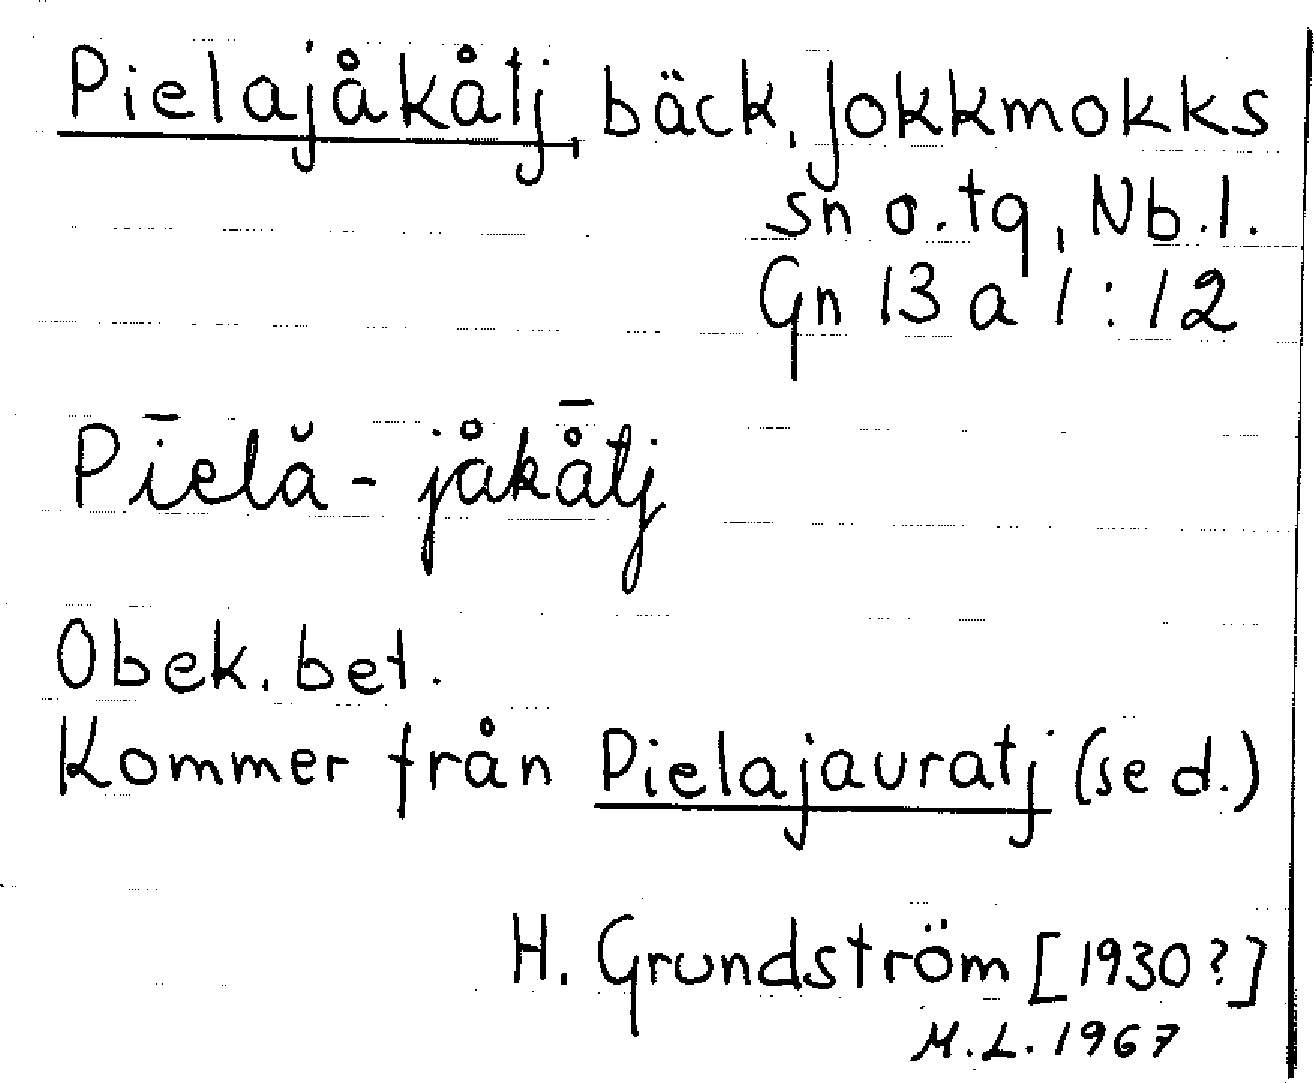 Pielajåkåtj, bäck, Jokkmokks
sn o. tg, Nb.l.
Gn 13 a 1:12
Pīelă-jåkå̄tj
Obek. bet.
Kommer från Pielajauratj (se d.)
H. Grundström [1930?]
M.L. 1967